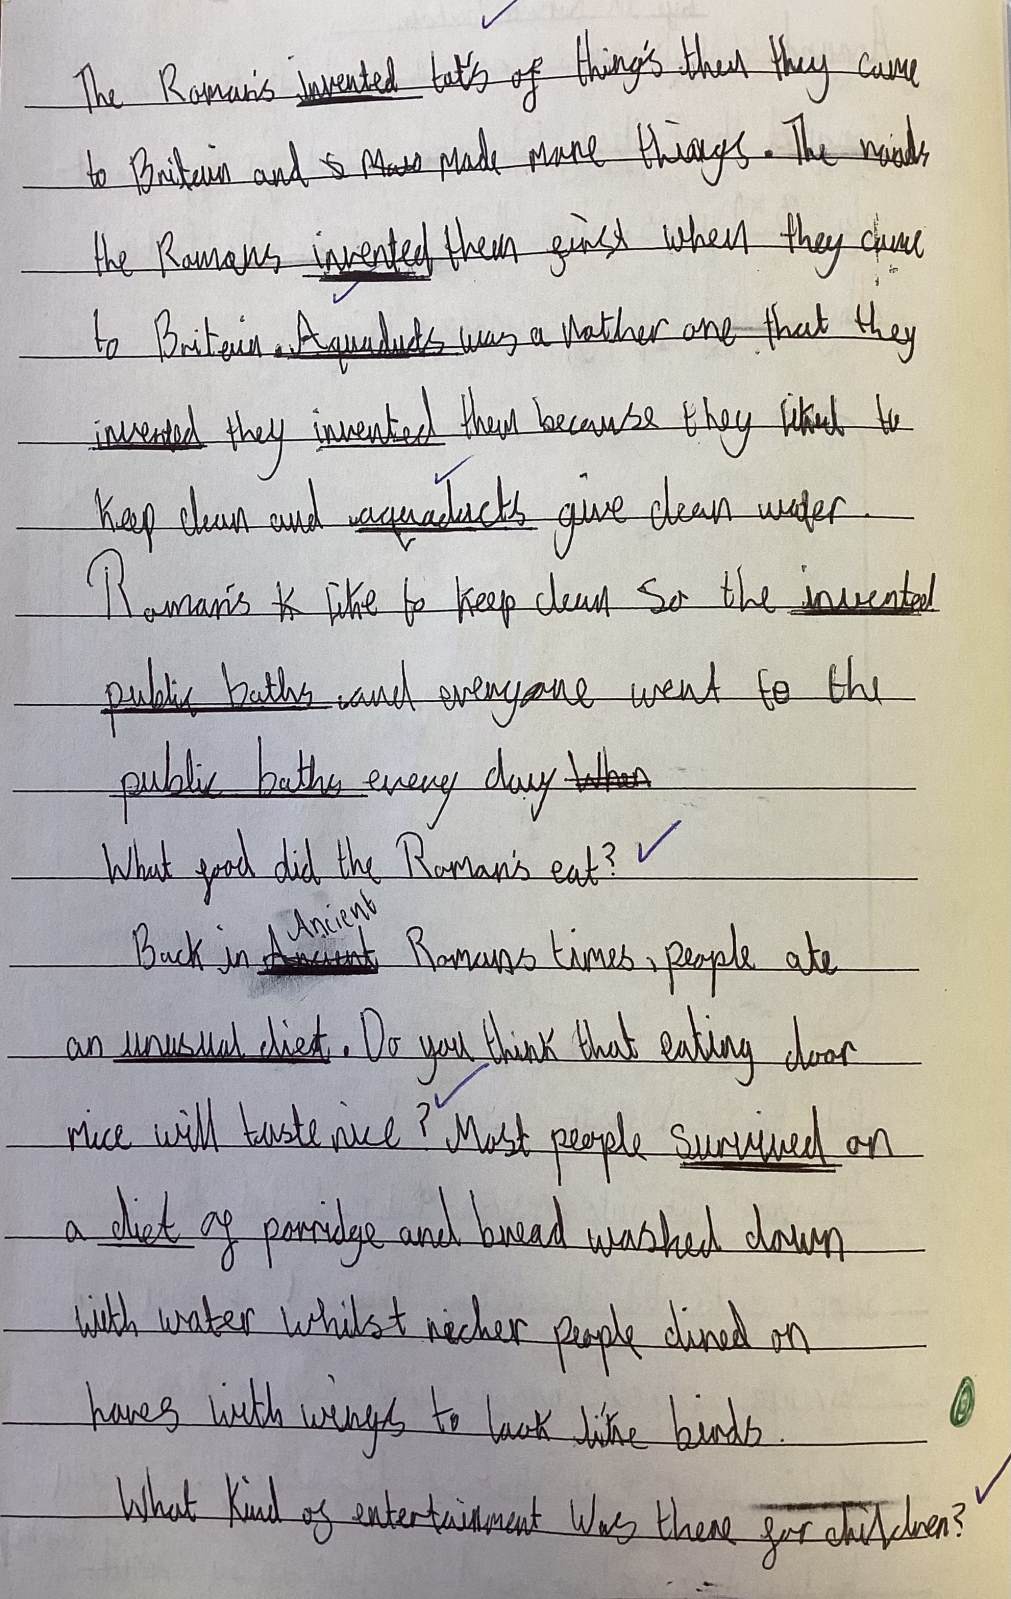 The Roman's invented lot's of thing's then they came
to Britain and made more things. The roads
the Romans invented them first when they came
to Britain. Aquaducts was a nother one that they
invented they invented them because they liked to
keep clean and aquaducts give clean water.
Roman's like to keep clean so the invented
public baths and everyone went to the
public baths every day When
What food did the Roman's eat?
Ancient
Back in Ancient Romans times, people ate
an unusual diet. Do you think that eating door
mice will taste nice? Most people survived on
a diet of porridge and bread washed down
with water whilst richer people dined on
hares with wings to look like birds.
What kind of entertainment was there for children?